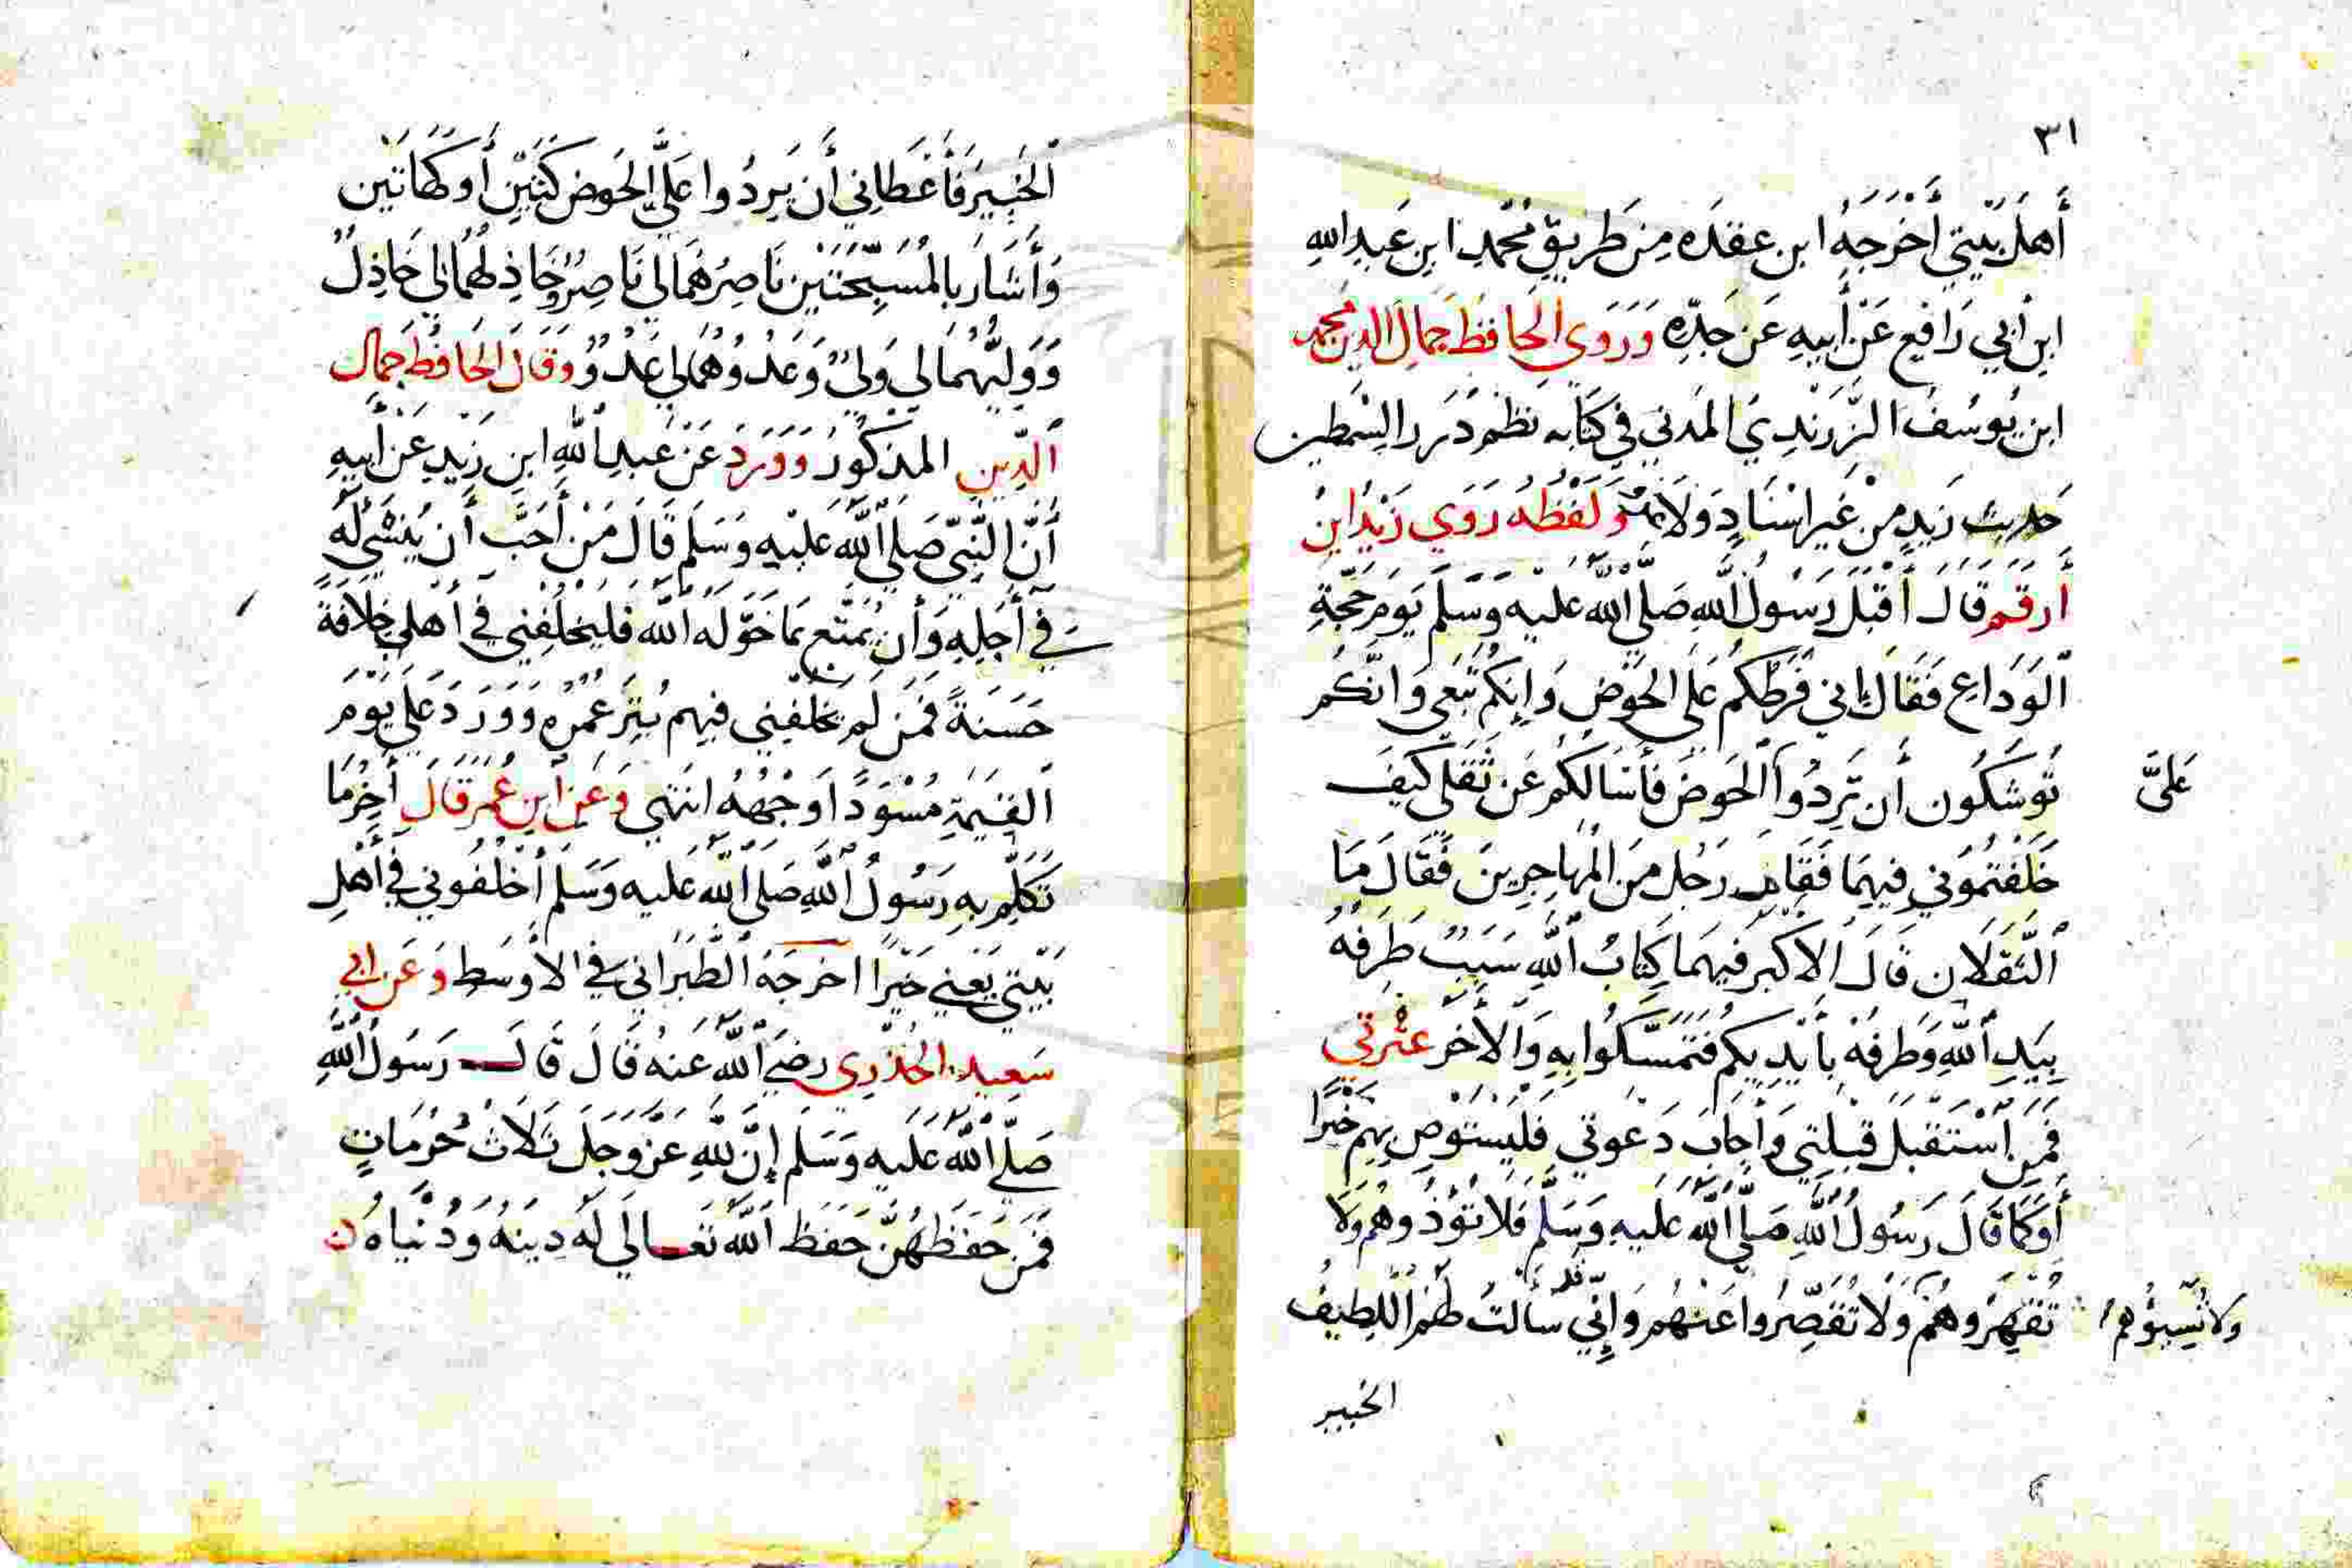 ٣١
أَهلَ بَيتي أَخرَجَهُ ابن عقدَه مِن طَريقِ مُحَمدِ ابنِ عَبدِ اللهِ
ابنِ أبي رَافِعٍ عَن أبيهِ عَن جَدِّهِ وَرَوَى الحَافظ جمالُ الدين محمد
ابن يُوسُفَ الزَّرَندِيُ المَدني في كتَابه نظم دُرَر السِّمطين
حَديث زَيدٍ مِنْ غَير اسْنَادٍ وَلفظهُ رَوَى زَيْدُ ابنُ
أرقم قَالَ أَقبَلَ رَسُولُ اللهِ صَلَّى اللهُ عَليْهِ وَسَلَّم يَومَ حَجَّةِ
الوَدَاعِ فَقَالَ إني فَرَطُكُم عَلَى الحَوْضِ وَإنكُم تَبَعي وَانَّكُم
تُوشكُون أَن تَرِدُوا عَلَيَّ الحَوضَ فَأَسْالكُم عَن ثَقَلَي كَيفَ
خَلَفتُمُوني فِيهِمَا فَقَامَ رَجُل مِنَ المُهَاجِرِينَ فَقَالَ مَا
الثَّقَلَانِ قَالَ الاكبَر فيهَمَا كِتَابُ اللهِ سَبَبٌ طَرفهُ
بِيَدِ اللهِ وَطَرفهُ بأَيْدِيكُم فَتَمَسَّكُوا بِهِ وَالأَخَر عتْرَتي
فَمَنِ اسْتَقبَلَ قِبلَتِي وَأَجابَ دَعْوتي فَليَستَوصِ بِهِم خَيْرًا
أَوكمَا قَالَ رَسُولُ اللهِ صَلَّى اللهُ عَلَيهِ وَسَلَّم فَلَا تُؤْذُوهُم وَلَا
تَقهَرُوهُم وَلَا تُقَصِّرُوا عَنهُم وَإِنِّي قد سَألتُ لَهُم اللَّطِيفُ
ولا تَسُبوُهم
الخبير
الخَبِيرَ فَأَعْطَانِي أَن يَردُوا عَلَيَّ الحَوض كَتَيْنِ أَوكهَاتَين
وَأَشَارَ بالمُسَبِّحَتَيْن نَاصِرُهُمَا لي نَاصِرٌ وخَاذِلُهُمَا لي خَاذِلٌ
وَوَليُّهُمَا لي وَليٌّ وَعَدُوُهُمَا لي عَدُوٌ وَقَالَ الحَافظُ جَمَال
الدِّينِ المذكُورُ وَوَرَدَ عَنْ عَبدِ اللهِ ابنِ زَيْدٍ عَن أَبيهِ
أنَّ النَّبيّ صَلى اللهُ عَليْهِ وَسَلم قَالَ مَنْ أَحَبَّ أَن يُنسَى لَهُ
فِي أَجَلِهِ وَأن يُمَتَّع بمَا خَوَّلهُ الله فَليَخلُفني في أَهْلي خِلَافَةً
حَسَنةً فَمَن لَم يَخلُفني فيهِم بُتِرَ عُمُرُهُ وَوَرَدَ عَلَيَّ يَوْمَ
القيَمَةِ مُسْوَدًّا وَجْهُهُ انتهى وَعَن ابن عُمَر قَالَ أَخِرُ مَا
تَكَلَّمَ بِهِ رَسُولُ اللهِ صَلَى اللهُ عَليه وَسَلم أُخْلُفُوني في أَهْلِ
بَيْتي يَعْني خَيْرًا اخرجَهُ الطَّبَرَاني في الأوسَط وَعَن ابي
سَعيد الخدْري رضيَ اللهُ عَنهُ قَالَ قَالَ رَسُولُ اللهِ
صَلَّى اللهُ عَليهِ وَسَلَم إنَّ للهِ عَزَّ وَجَلَ ثَلَاثَ حُرُمَاتٍ
فَمَن حَفِظَهُنَّ حَفِظَ اللهُ تَعَالَى لَهُ دِينَهُ وَدُنْيَاهُ